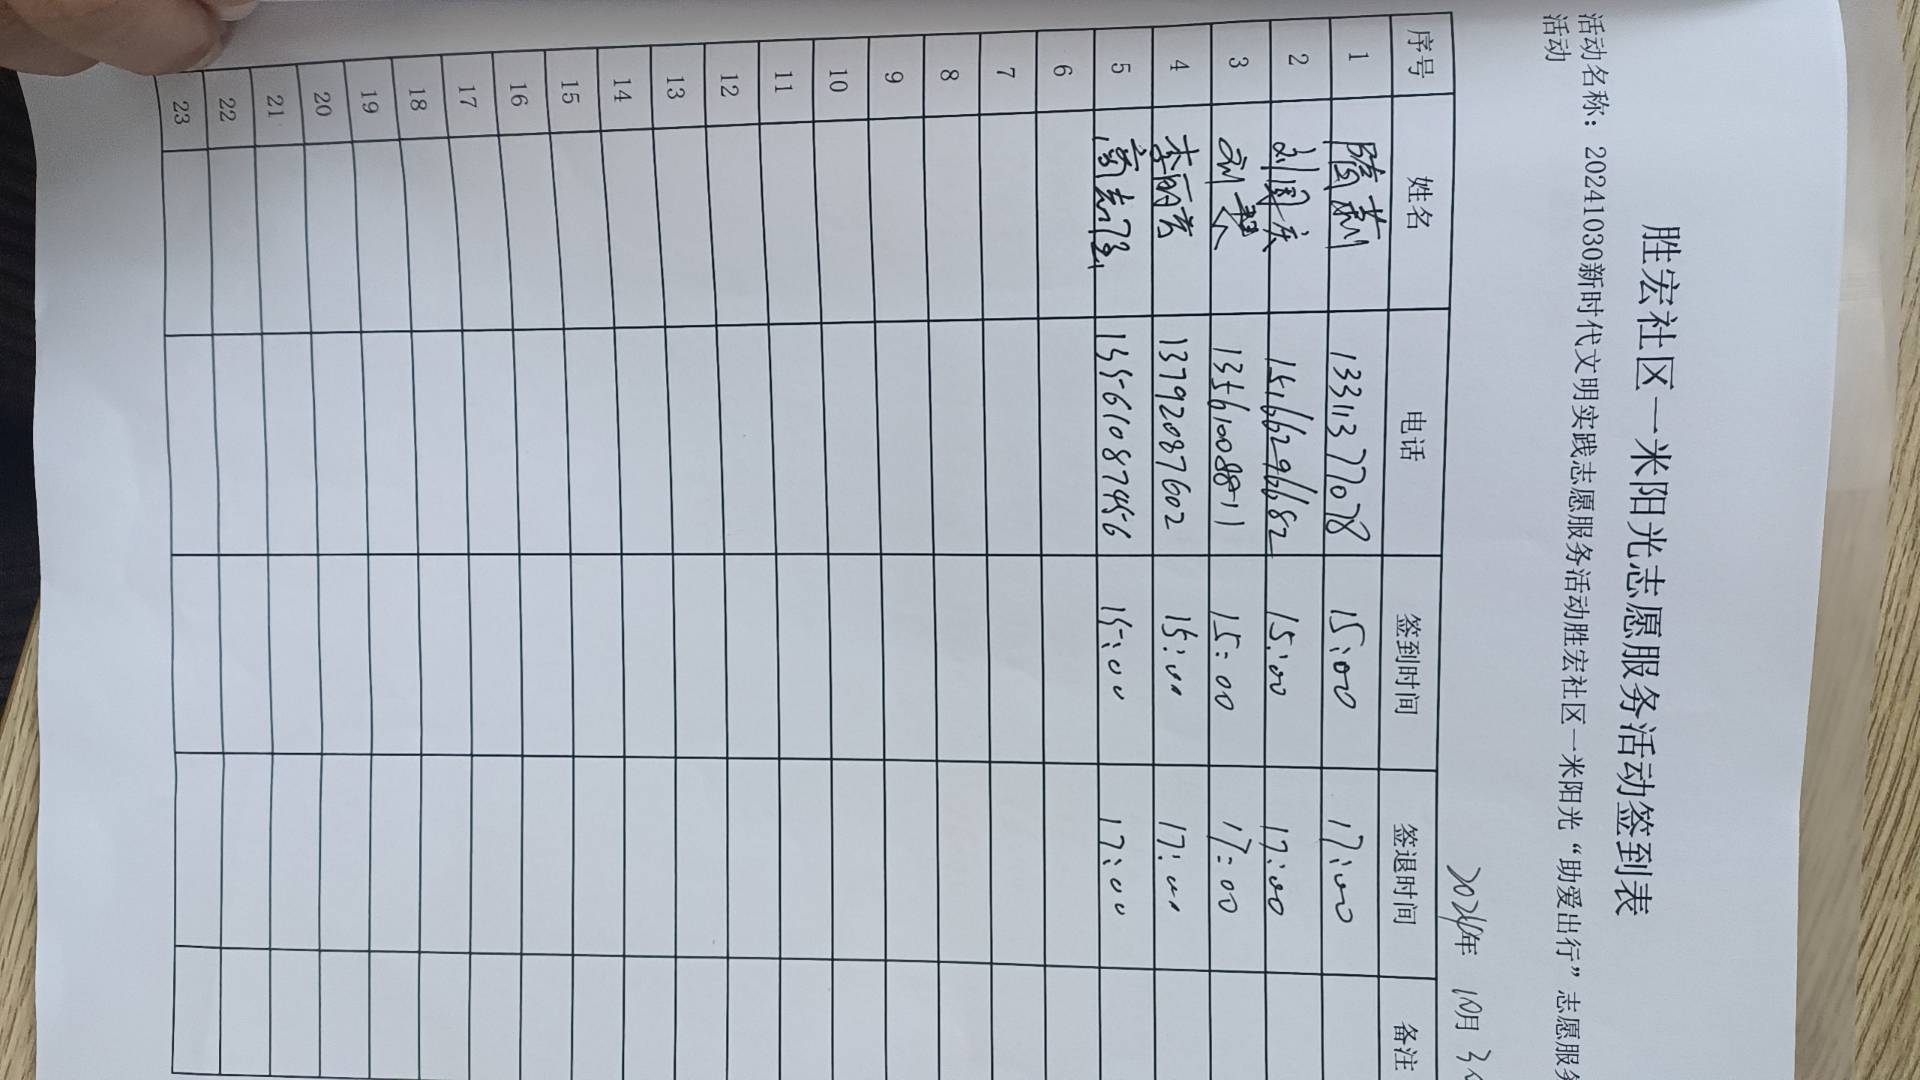 胜宏社区一米阳光志愿服务活动签到表
活动名称：20241030新时代文明实践志愿服务活动胜宏社区一米阳光“助爱出行”志愿服务
活动
2024年 10月 30
序号 姓名 电话 签到时间 签退时间 备注
1 13311377078 15:00 17:00
2 刘国庆 15166296682 15:00 17:00
3 15:00 17:00
4 李丽芳 13792087602 15:00 17:00
5 15561087456 15:00 17:00
6
7
8
9
10
11
12
13
14
15
16
17
18
19
20
21
22
23